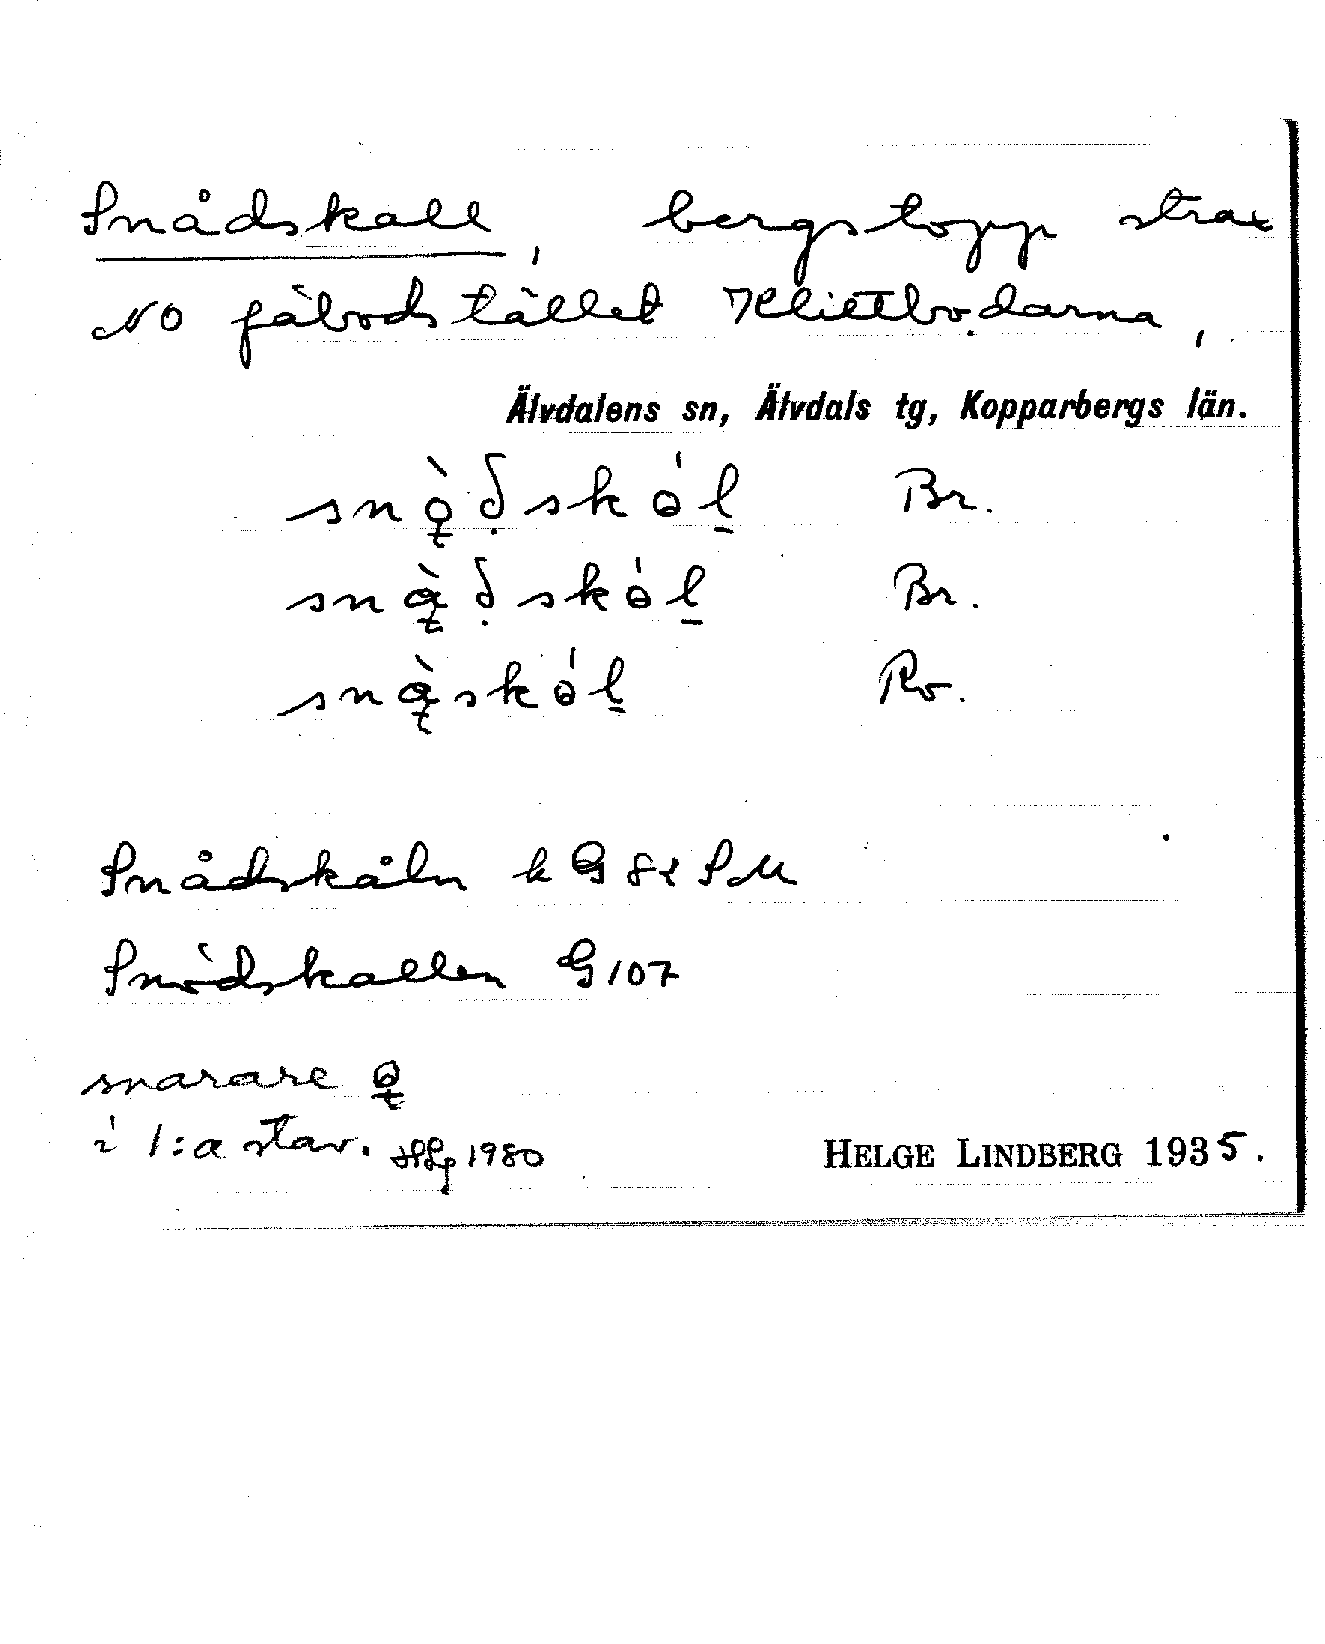 Snådskall, bergstopp strax
NO fäbodstället Klittbodarna,
Älvdalens sn, Älvdals tg, Kopparbergs län.
Br.
Br.
Ro.
Snådskåln k G 81 SM
Snödskallen G 107
snarare
i 1:a stav. 1980
HELGE LINDBERG 1935.